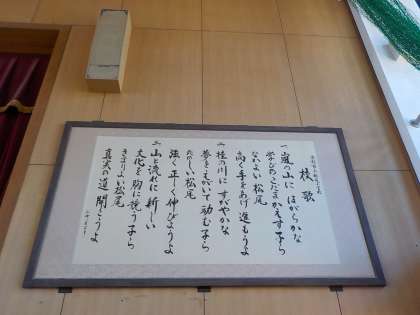 校歌
一 嵐の山に ほがらかな
学びのこだまかえす子ら
なかよい松尾
高く手をあげ進もうよ
二 桂の川に すがやかな
夢をえがいて励む子ら
たのしい松尾
強く正しく伸びようよ
三 山と流れに新しい
文化を胸に競う子ら
きまりよい松尾
真実の道 開こうよ